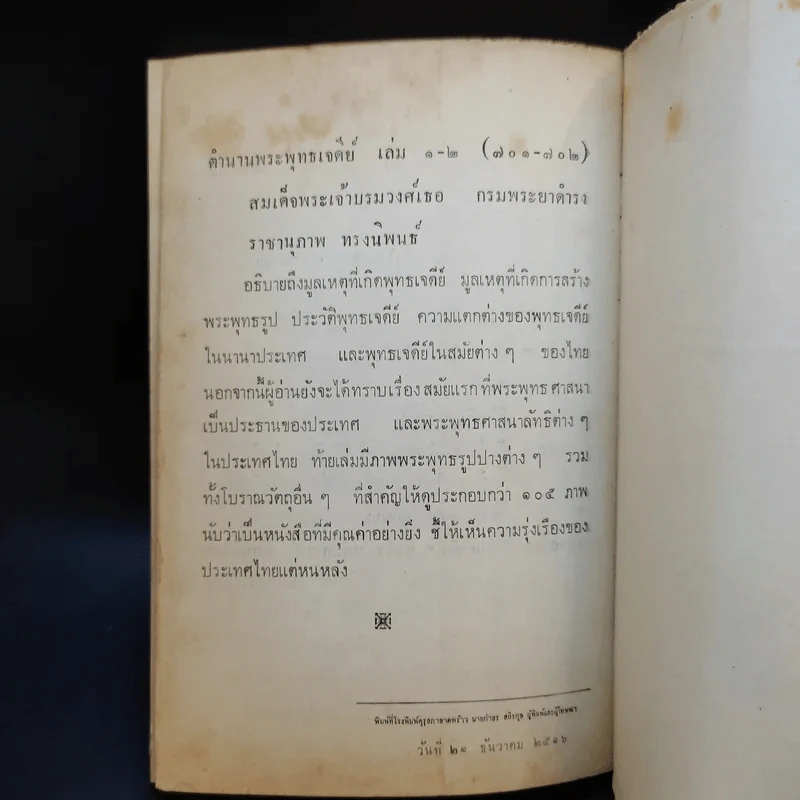 ตำนานพระพุทธเจดีย์ เล่ม ๑-๒ (๗๐๑-๗๐๒)
สมเด็จพระเจ้าบรมวงศ์เธอ กรมพระยาดำรง
ราชานุภาพ ทรงนิพนธ์
อธิบายถึงมูลเหตุที่เกิดพุทธเจดีย์ มูลเหตุที่เกิดการสร้าง
พระพุทธรูป ประวัติพุทธเจดีย์ ความแตกต่างของพุทธเจดีย์
ในนานาประเทศ และพุทธเจดีย์ในสมัยต่าง ๆ ของไทย
นอกจากนี้ผู้อ่านยังจะได้ทราบเรื่อง สมัยแรก ที่พระพุทธ ศาสนา
เป็นประธานของประเทศ และพระพุทธศาสนาลัทธิต่าง ๆ
ในประเทศไทย ท้ายเล่มมีภาพพระพุทธรูปปางต่าง ๆ รวม
ทั้งโบราณวัตถุอื่น ๆ ที่สำคัญให้ดูประกอบกว่า ๑๐๕ ภาพ
นับว่าเป็นหนังสือที่มีคุณค่าอย่างยิ่ง ชี้ให้เห็นความรุ่งเรืองของ
ประเทศไทยแต่หนหลัง
พิมพ์ที่โรงพิมพ์คุรุสภาลาดพร้าว นายกำธร สถิรกุล ผู้พิมพ์และผู้โฆษณา
วันที่ ๒๑ ธันวาคม ๒๕๑๖